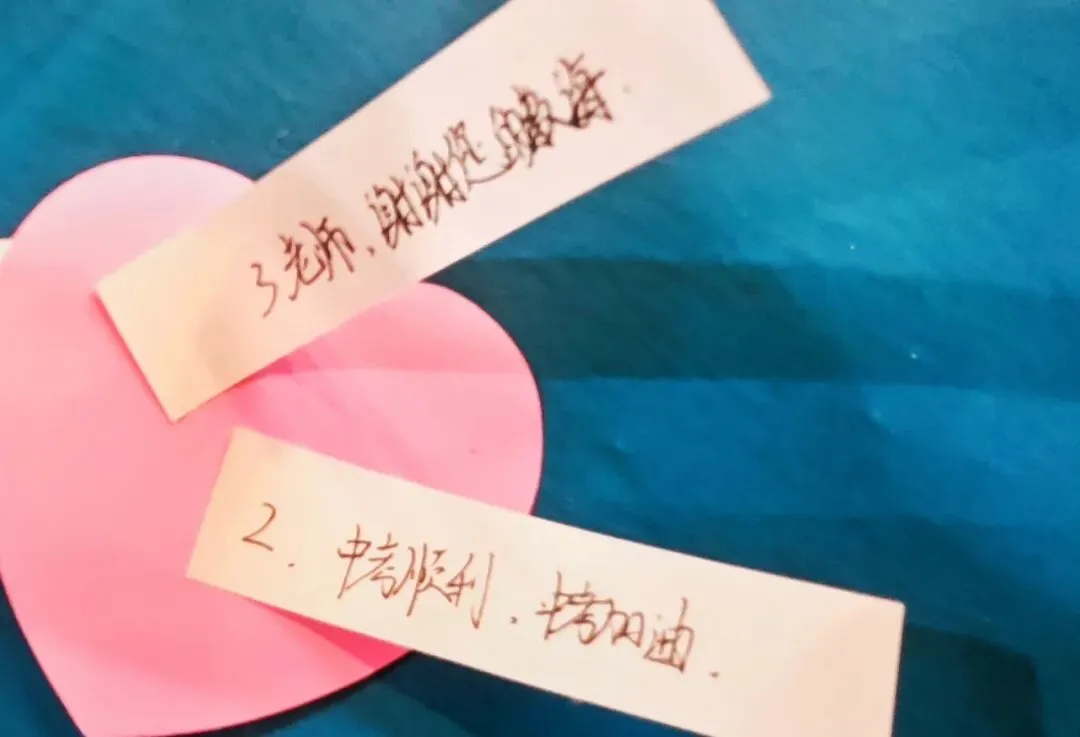 3 老师、谢谢您的教诲.
2. 中考顺利、中考加油.